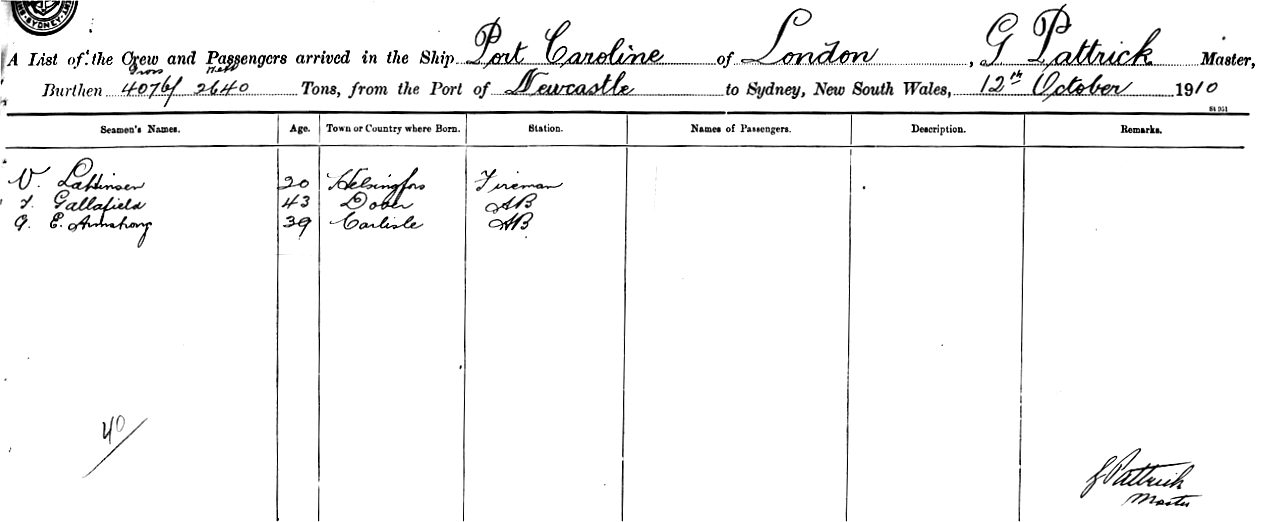 SYDNEY
A List of the Crew and Passengers arrived in the Ship Port Caroline of London, G Pattrick Master,
Gross Nett
Burthen 4076/ 2640 Tons, from the Port of Newcastle to Sydney, New South Wales, 12th October 1910
St 951
Seamen's Names. Age. Town or Country where Born. Station. Names of Passengers. Description. Remarks.
V. 20 Helsingfors Fireman
Gallafield 43 Dover AB
G. E. Armstrong 39 Carlisle AB
40
G Pattrick
Master